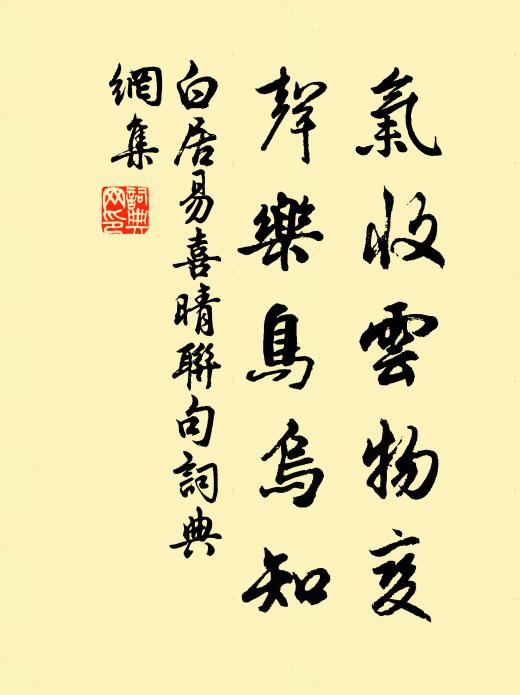 氣收雲物變
聲樂鳥烏知
白居易喜晴聯句詞典
網集
詞典
网印